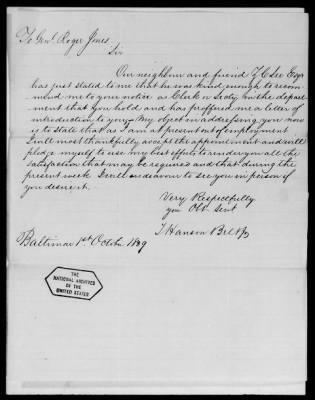 To Genl. Roger Jones
Sir
Our neighbour and friend Z C Lee Esqr
has just stated to me that he was kind enough to recom
mend me to your notice as Clerk or Secty in the depart
ment that you hold and has proffered me a letter of
introduction to you. My object in addressing you now
is to state that as I am at present out of employment
I will most thankfully accept the appointment and will
pledge myself to use my best efforts to render you all the
satisfaction that may be required and that during the
present week I will endeavor to see you in person if
you desire it.
Very Respectfully
your Obt. Servt
T Hanson Belt
Baltimore 1st October 1839
THE
NATIONAL ARCHIVES
OF THE
UNITED STATES